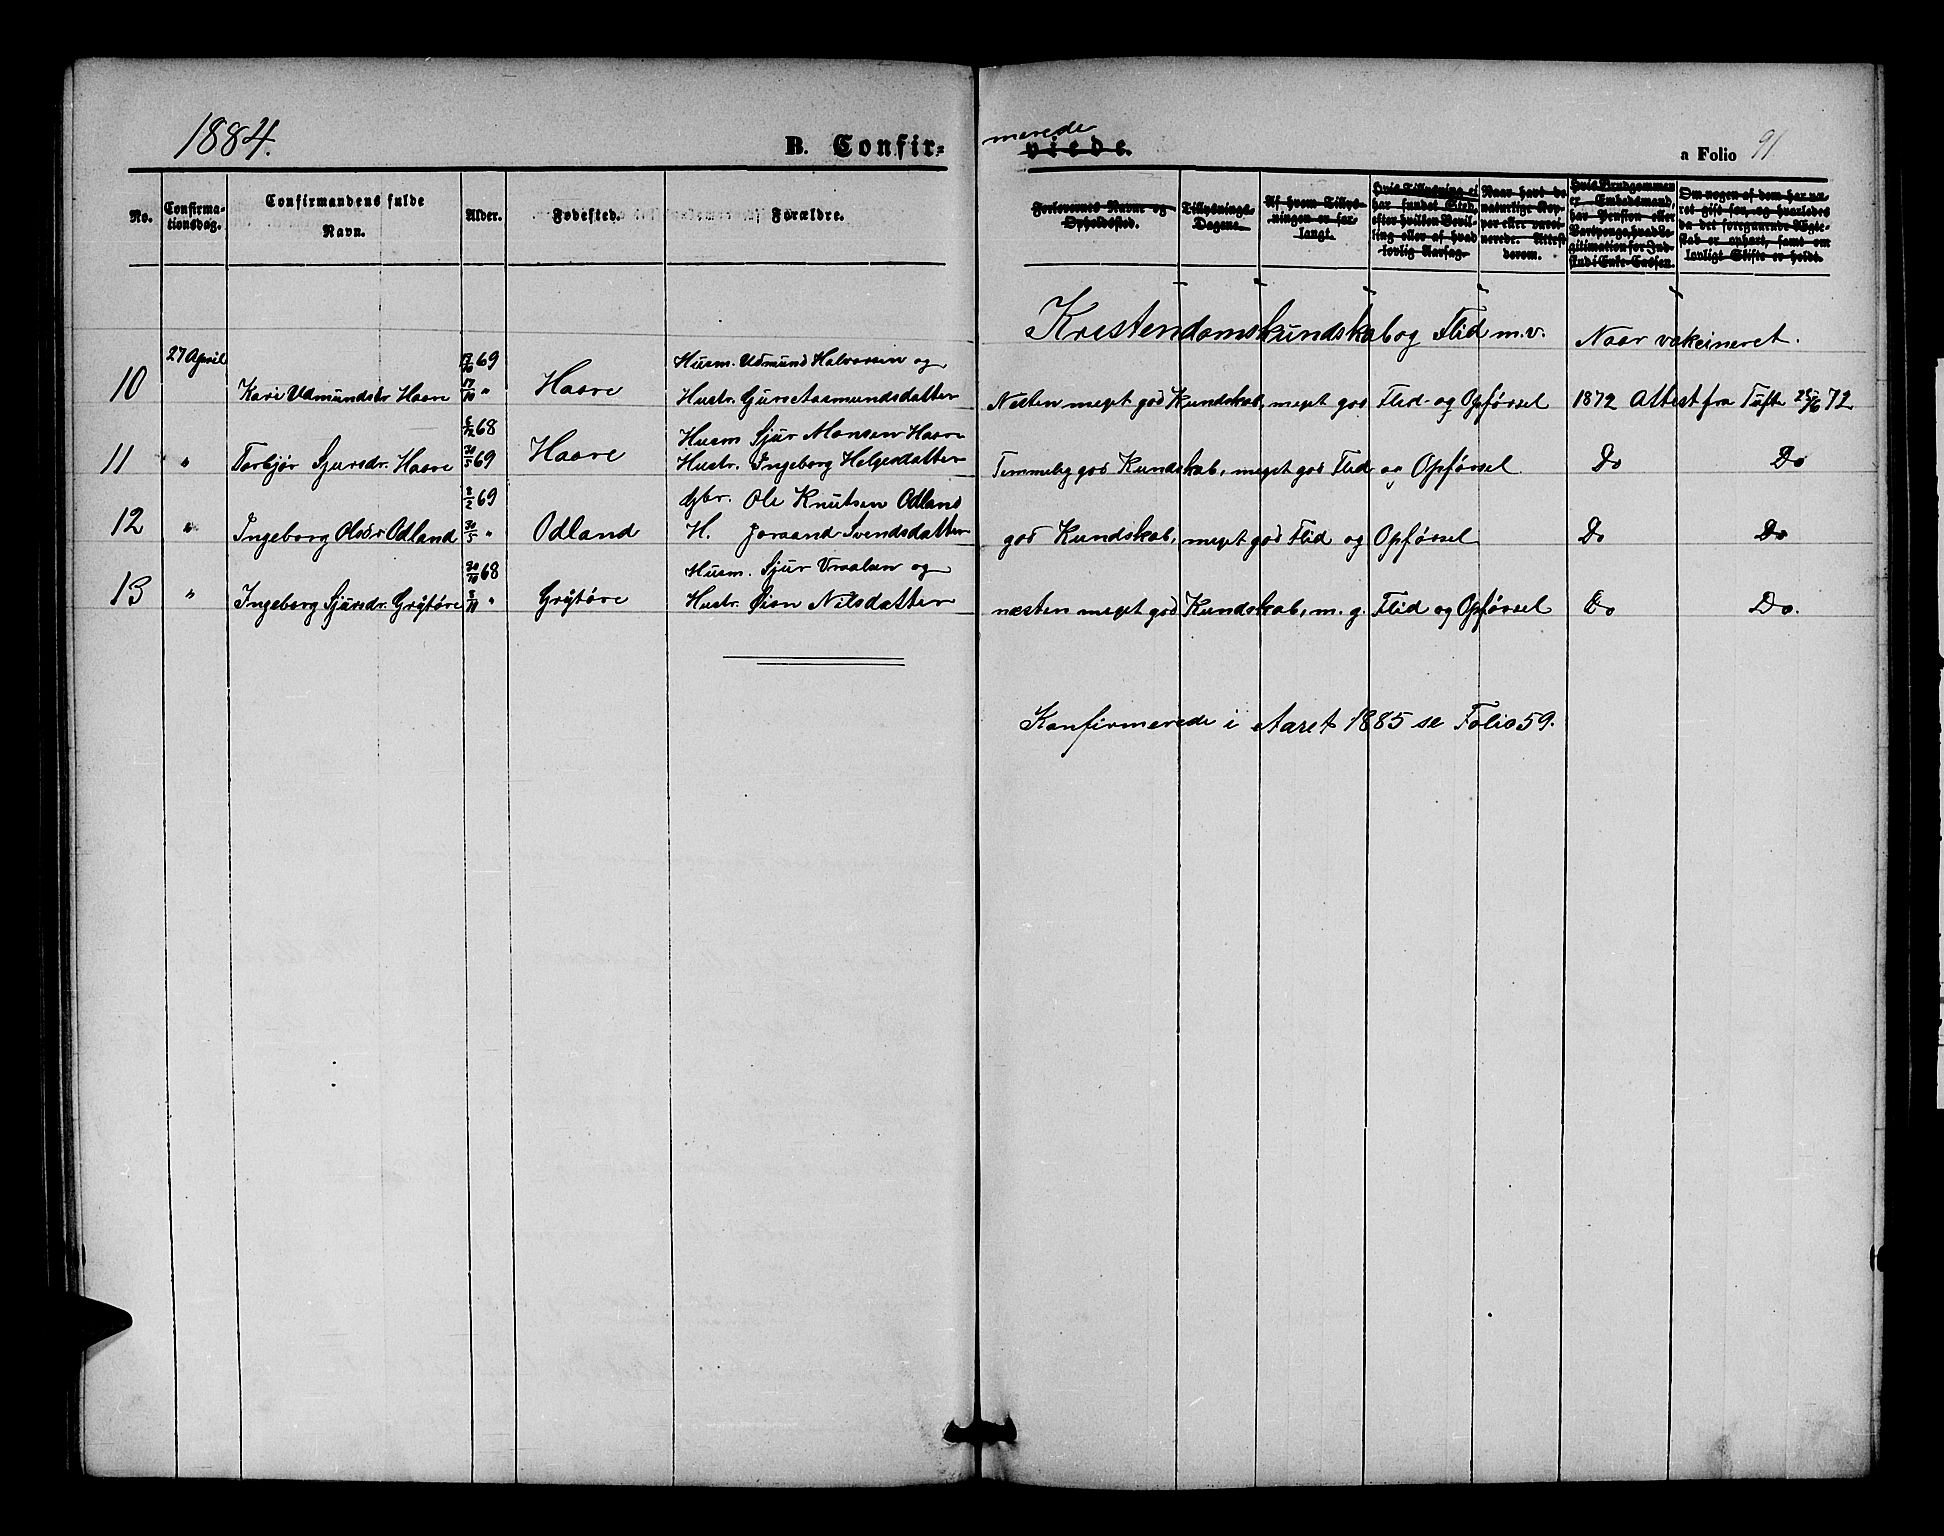 1884.
B. Confir-
merede
viede.
a Folio 91
No.
Confirma-
tionsdag.
Confirmandens fulde
Navn.
Alder.
Fødested.
Forældre.
Forlovernes Navne og
Opholdssted.
Tillysnings-
Dagene.
Af hvem Tillys-
ningen er for-
langt.
Hvis Tillysning ei
har fundet Sted,
efter hvilken Bevil-
ling eller af hvad
lovlig Aarsag.
Naar havt de
naturlige Kop-
per eller vacci-
nerede. Attest
derom.
Hvis Brudgommen
er Embedsmand,
har Pension eller
Vartpenge, hvad Le-
gitimation for Ind-
skud i Enke-Cassen.
Om nogen af dem har væ-
ret gift før, og hvorledes
da det foregaaende Ægte-
skab er ophørt, samt om
lovligt Skifte er holdt.
Kristendomskundskab og Flid m.v. Naar vakcineret.
27 April 69 Husm. Udmund Halvorsen og
10 Kari Udmundsdr Haave 17/10 " Haave Hustr. Guro Aasmundsdatter Nesten meget god Kundskab, meget god Flid og Opførsel 1872 Attest fra Tufte 72
68 Husm Sjur Monsen Haave
11 " Torbjør Sjursdr. Haave 30/5 69 Haave Hustr. Ingeborg Helgesdatter Temmelig god Kundskab, meget god Flid og Opførsel Do Do
8/2 69 Gbr. Ole Knutsen Odland
12 " Ingeborg Olsdr Odland 30/5 " Odland H. Joraand Svendsdatter god Kundskab, meget god Flid og Opførsel Do Do
30/10 68 Husm. Sjur Vraalsen og
13 " Ingeborg Sjursdr. Grytøre " Grytøre Hustr. Nilsdatter næsten meget god Kundskab, m. g. Flid og Opførsel Do Do.
Konfirmerede i Aaret 1885 se Folio 59.